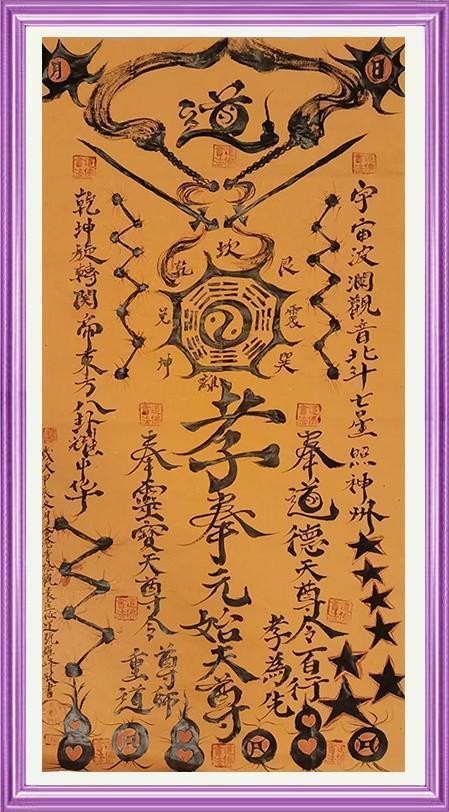 日
月
道
宇宙波瀾觀音北斗七星照神州
乾坤旋轉関帝東方八卦耀中华
乾
坎
艮
兌
震
坤
離
巽
孝奉元始天尊
奉道德天尊令百行
孝為先
奉靈寶天尊令
尊師
重道